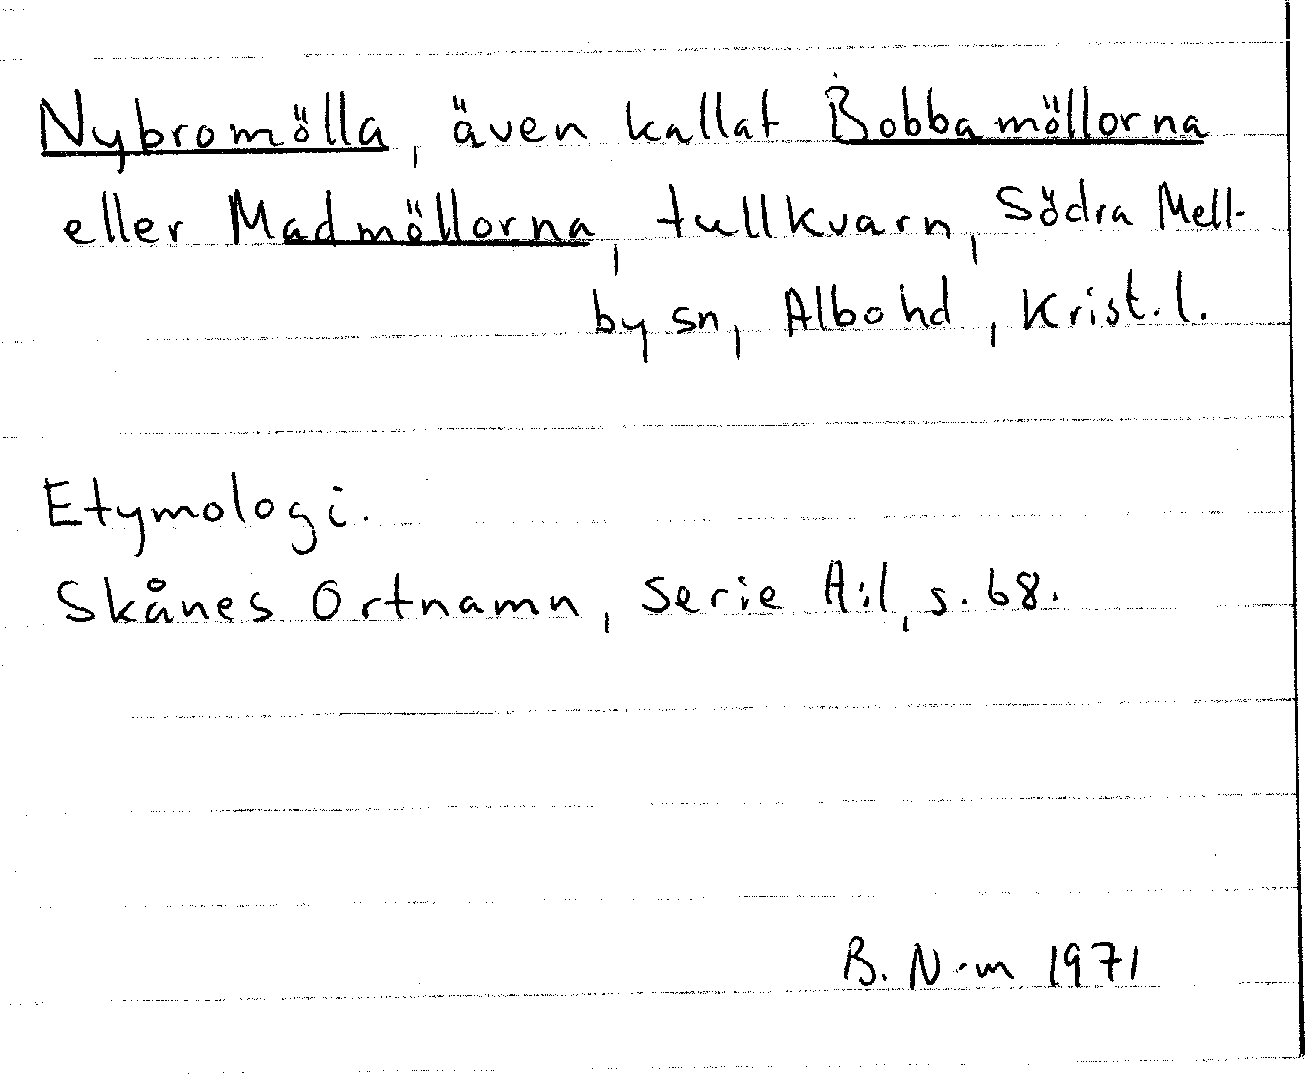 Nybromölla, även kallat Bobbamöllorna
eller Madmöllorna, tullkvarn, Södra Mell-
by sn, Albo hd, Krist. l.
Etymologi.
Skånes Ortnamn, Serie A:1, s. 68.
B. N-m 1971